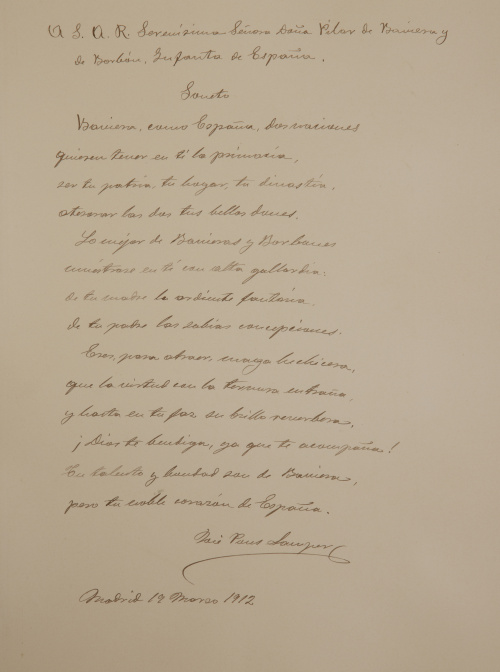 A S. A. R. Serenísima Señora Doña Pilar de Baviera y
de Borbón, Infanta de España.
Soneto
Baviera, como España, dos naciones
quieren tener en ti la primacía,
ser tu patria, tu hogar, tu dinastía,
atesorar las dos tus bellos dones.
Lo mejor de Bavieras y Borbones
muéstrase en ti con alta gallardía:
de tu madre la ardiente fantasía
de tu padre las sabias concepciones.
Eres, para atraer, maga hechicera,
que la virtud con la ternura entraña,
y hasta en tu faz su brillo reverbera,
¡Dios te bendiga, ya que te acompaña!
Tu talento y bondad son de Baviera,
pero tu noble corazón de España.
Pons Samper
Madrid 19 Marzo 1912